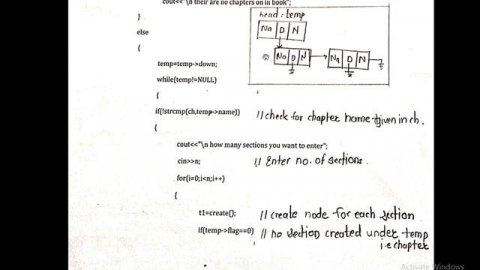 cout<<"\n their are no chapters on in book";
}
else
{
head = temp
Na D N
Na D N
Na D N
temp=temp->down;
while(temp!=NULL)
{
if(!strcmp(ch,temp->name)) // check for chapter name given in ch.
{
cout<<"\n how many sections you want to enter";
cin>>n; // Enter no. of sections.
for(i=0;i<n;i++)
{
t1=create(); // create node for each section
if(temp->flag==0) // no section created under temp
i.e chapter
Activate Windows